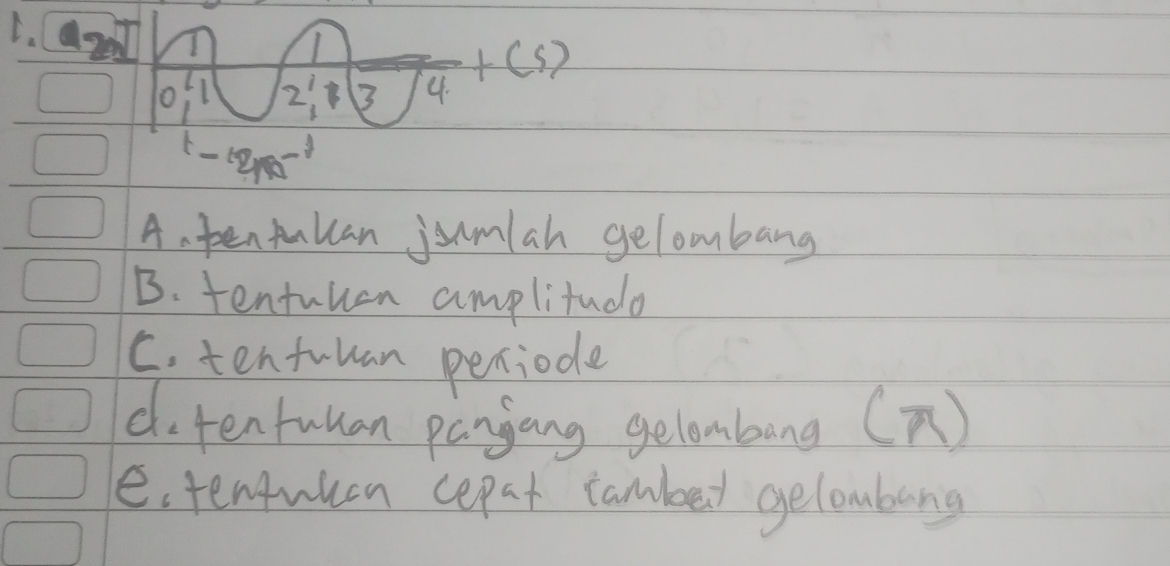 1.
t (s)
0 1 2 3 4
A. tentukan jumlah gelombang
B. tentukan amplitudo
C. tentukan periode
d. tentukan panjang gelombang (π)
e. tentukan cepat rambat gelombang